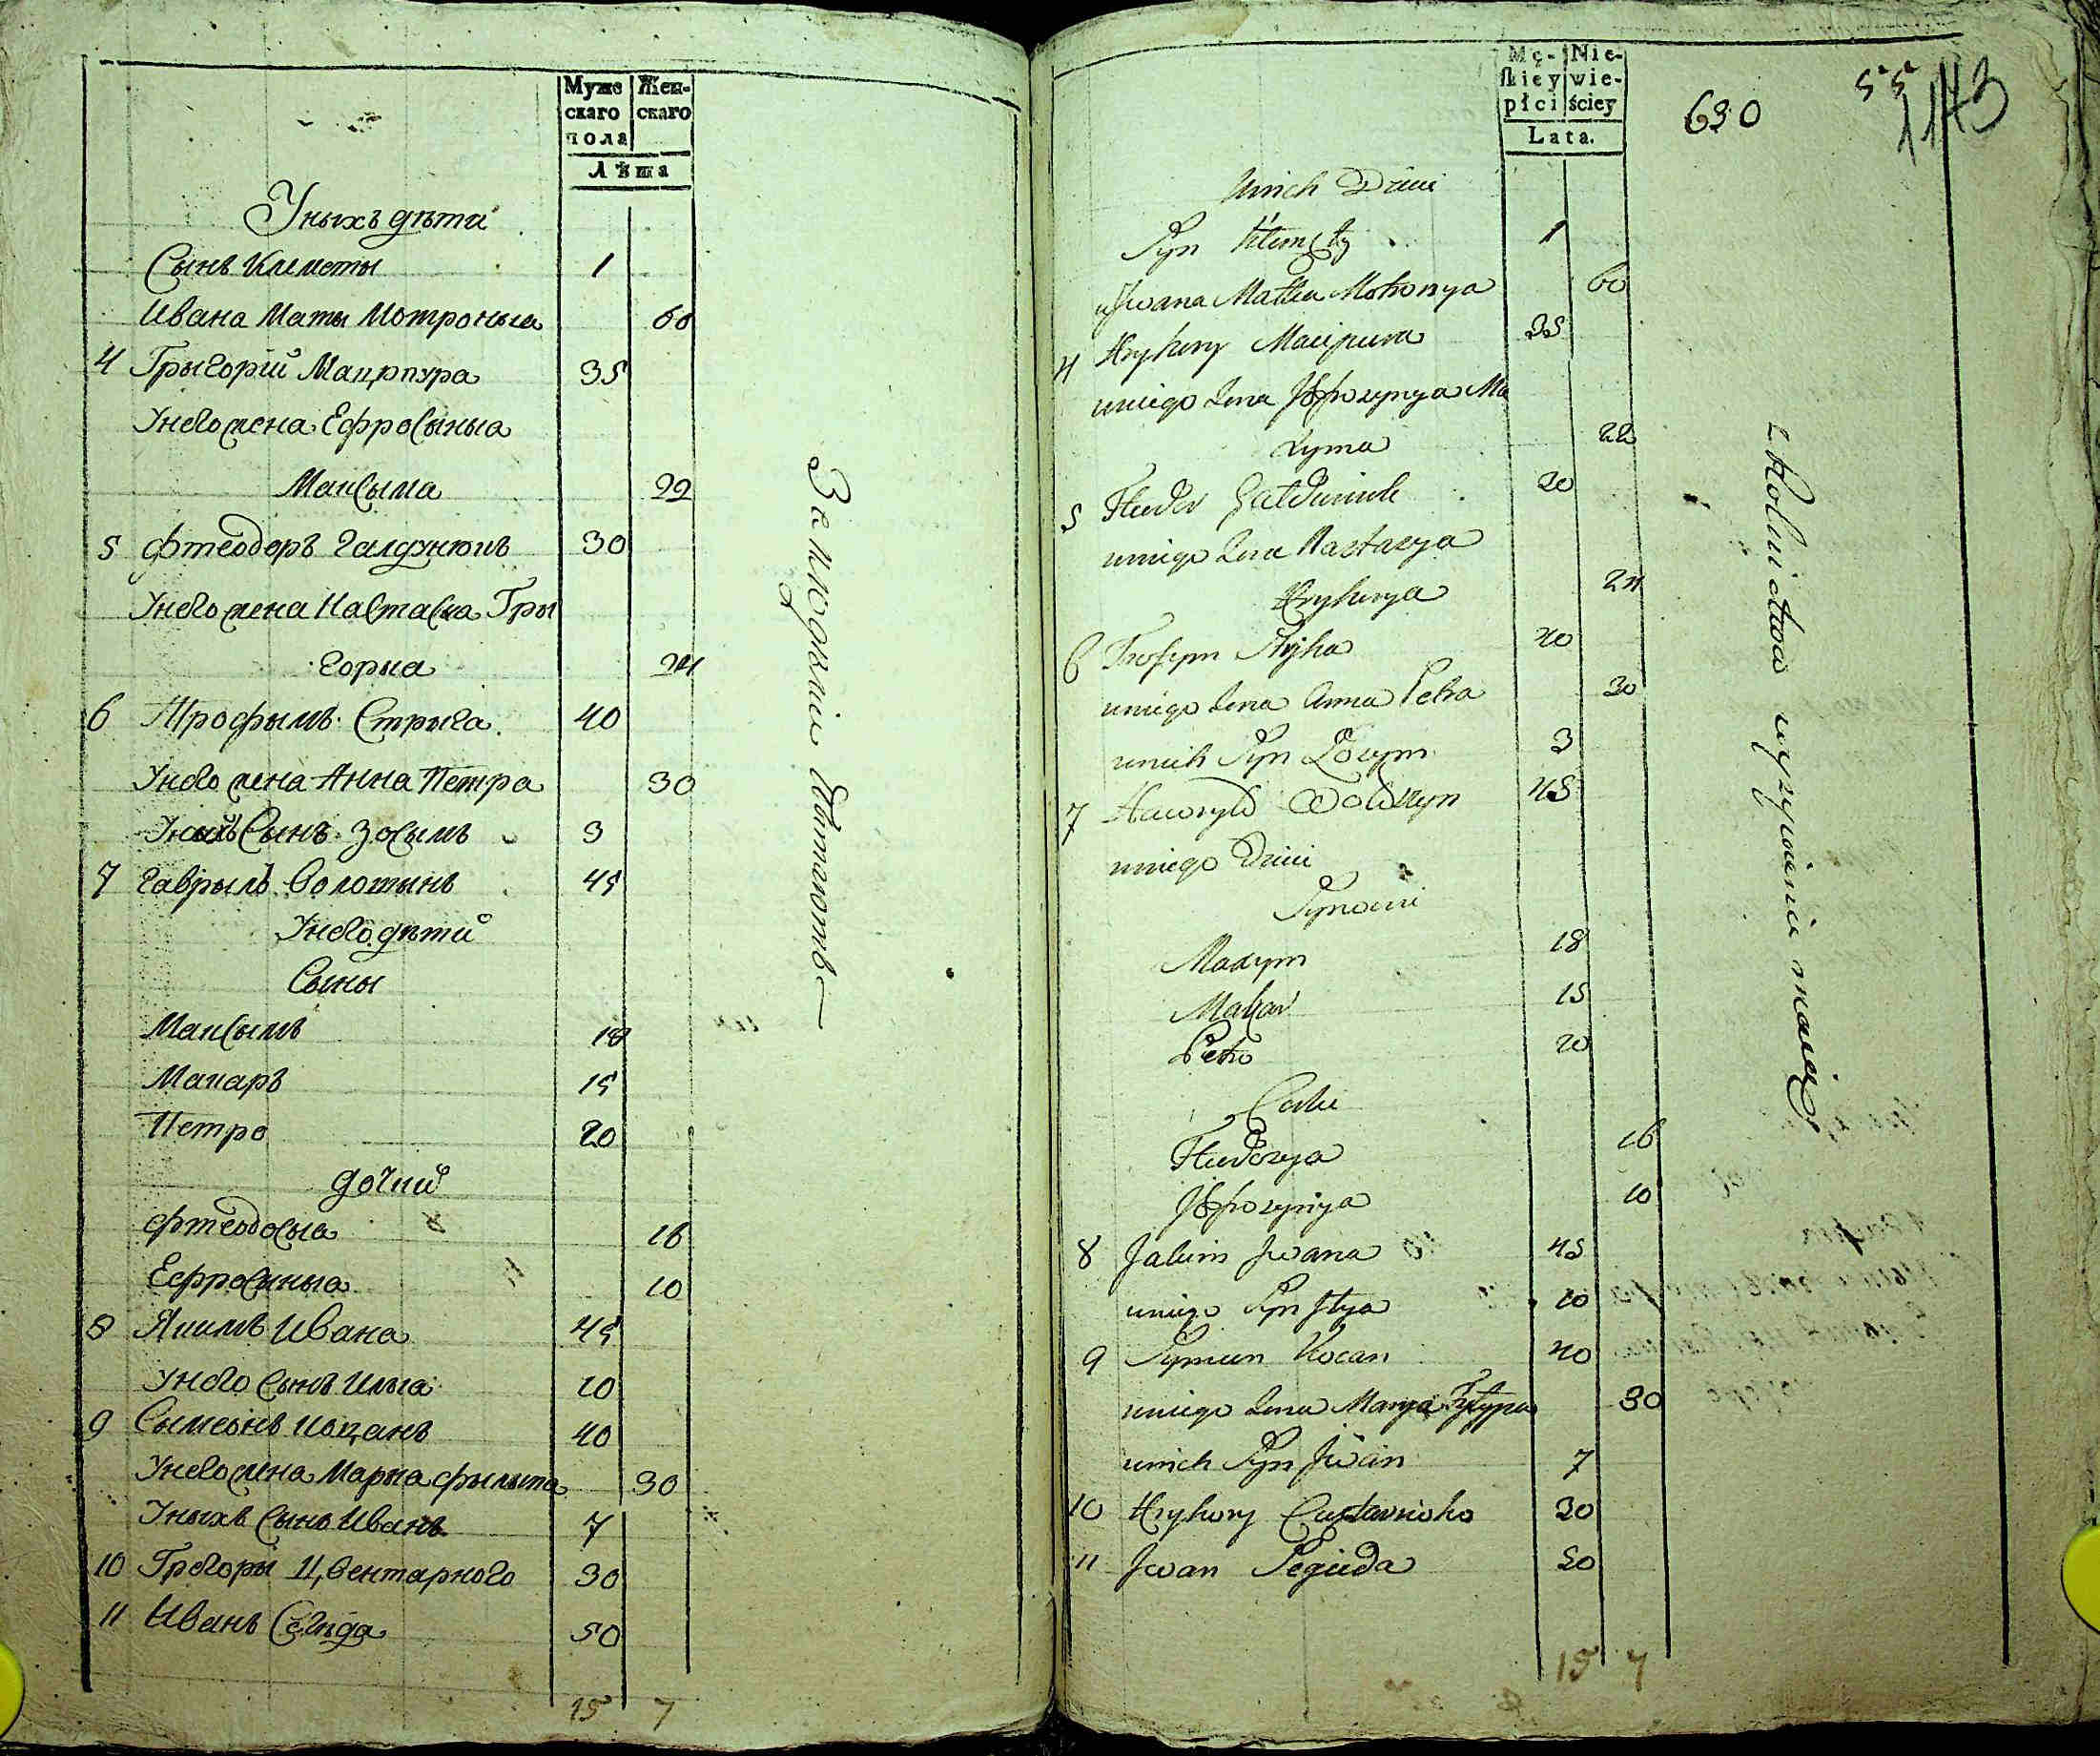 Муже
скаго
пола
Жен-
скаго
Лѣта
Уныхъ дѣти
Сынъ Климеты 1
Ивана Маты Мотроныа 60
4 Грыгорій Мацрпура 35
Унего жена Ефросыныа
Максыма 22
5 Фтеодоръ Галдунюкъ 30
Унего жена Настасыа Гры
горыа 24
6 Трофымъ Стрыга 40
Унего жена Анна Петра 30
Уныхъ Сынъ Зосымъ 3
7 Гаврылъ Волотынъ 45
Унего дѣтий
Сыны
Максымъ 18
Макаръ 15
Петро 20
дочкий
Фтеодосыа 16
Ефросыныа 10
8 Якимъ Ивана 45
Унего Сынъ Илыа 10
9 Сымеонъ Коцанъ 40
Унего жена Марыа Фылыпа 30
Уныхъ Сынъ Иванъ 7
10 Грегоры Цвентарного 30
11 Иванъ Сегѣда 50
15 7
Mę-
skiey
płci
Nie-
wie-
ściey
Lata.
630
55
1143
Unich Dzieci
Syn Klemęty 1
uJwana Matka Motronya 60
4 Hryhory Macipura 35
uniego Zona Jefrozynya Ma
xyma 22
5 Fteodor Gałduniuk 20
uniego Zona Nastazya
Hryhorya 24
6 Trofym Stryha 40
uniego Zona Anna Petra 30
unich Syn Zozym 3
7 Hawryło Wołoszyn 45
uniego Dzieci
Synowie
Maxym 18
Makar 15
Petro 20
Corki
Fteodozya 16
Jefrozynya 10
8 Jakim Jwana 45
uniego Syn Jlya 10
9 Symeon Kocan 40
uniego Zona Marya Fyłypa 30
unich Syn Jwan 7
10 Hryhory 30
11 Jwan Segieda 50
15 7
z Rolnictwa wyzywienie maią